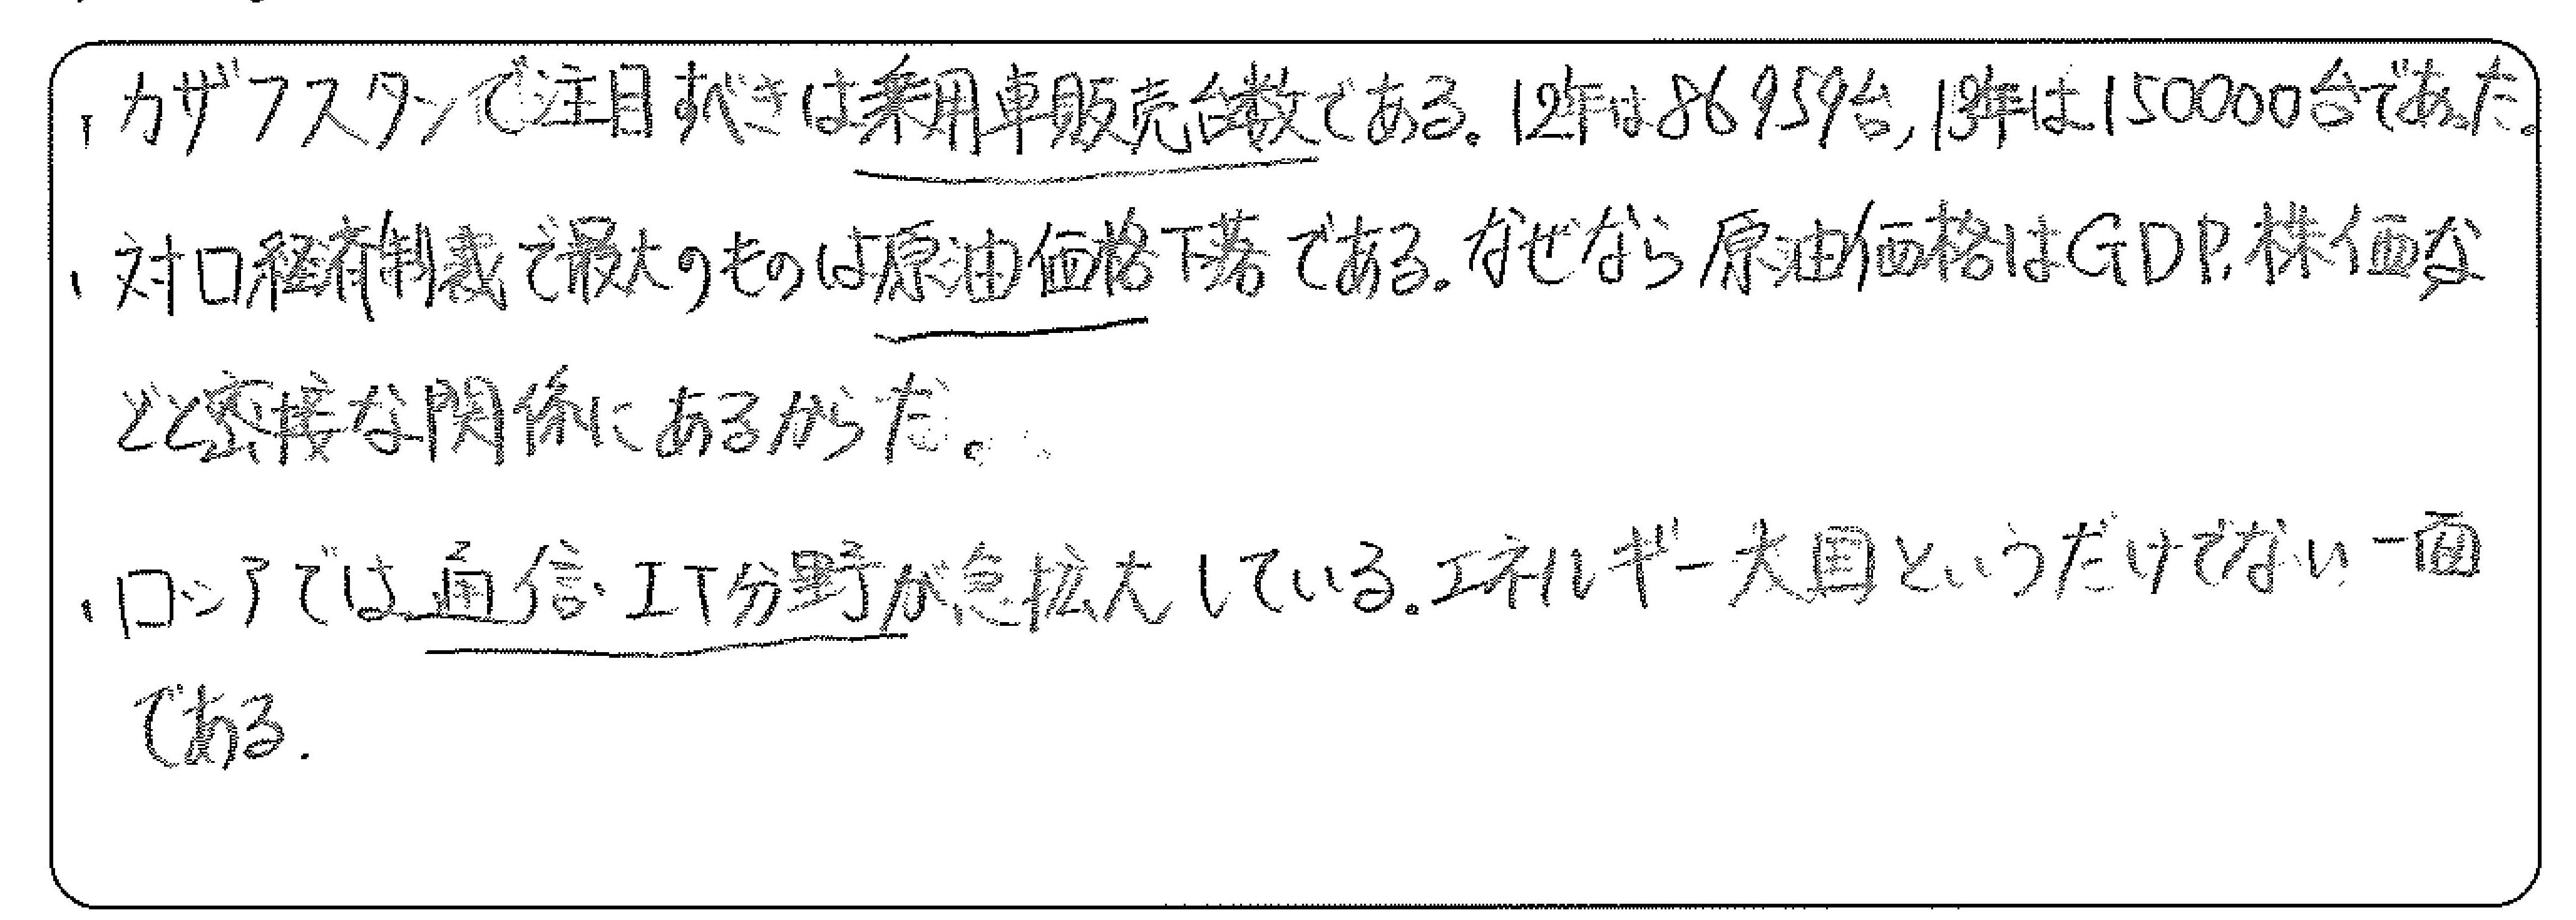 ・カザフスタンで注目すべきは乗用車販売台数である。12年は86959台,13年は150000台であった。
・対ロ経済制裁で最大のものは原油価格下落である。なぜなら原油価格はGDP,株価な
どと密接な関係にあるからだ。
・ロシアでは通信・IT分野が急拡大している。エネルギー大国というだけでない一面
である.